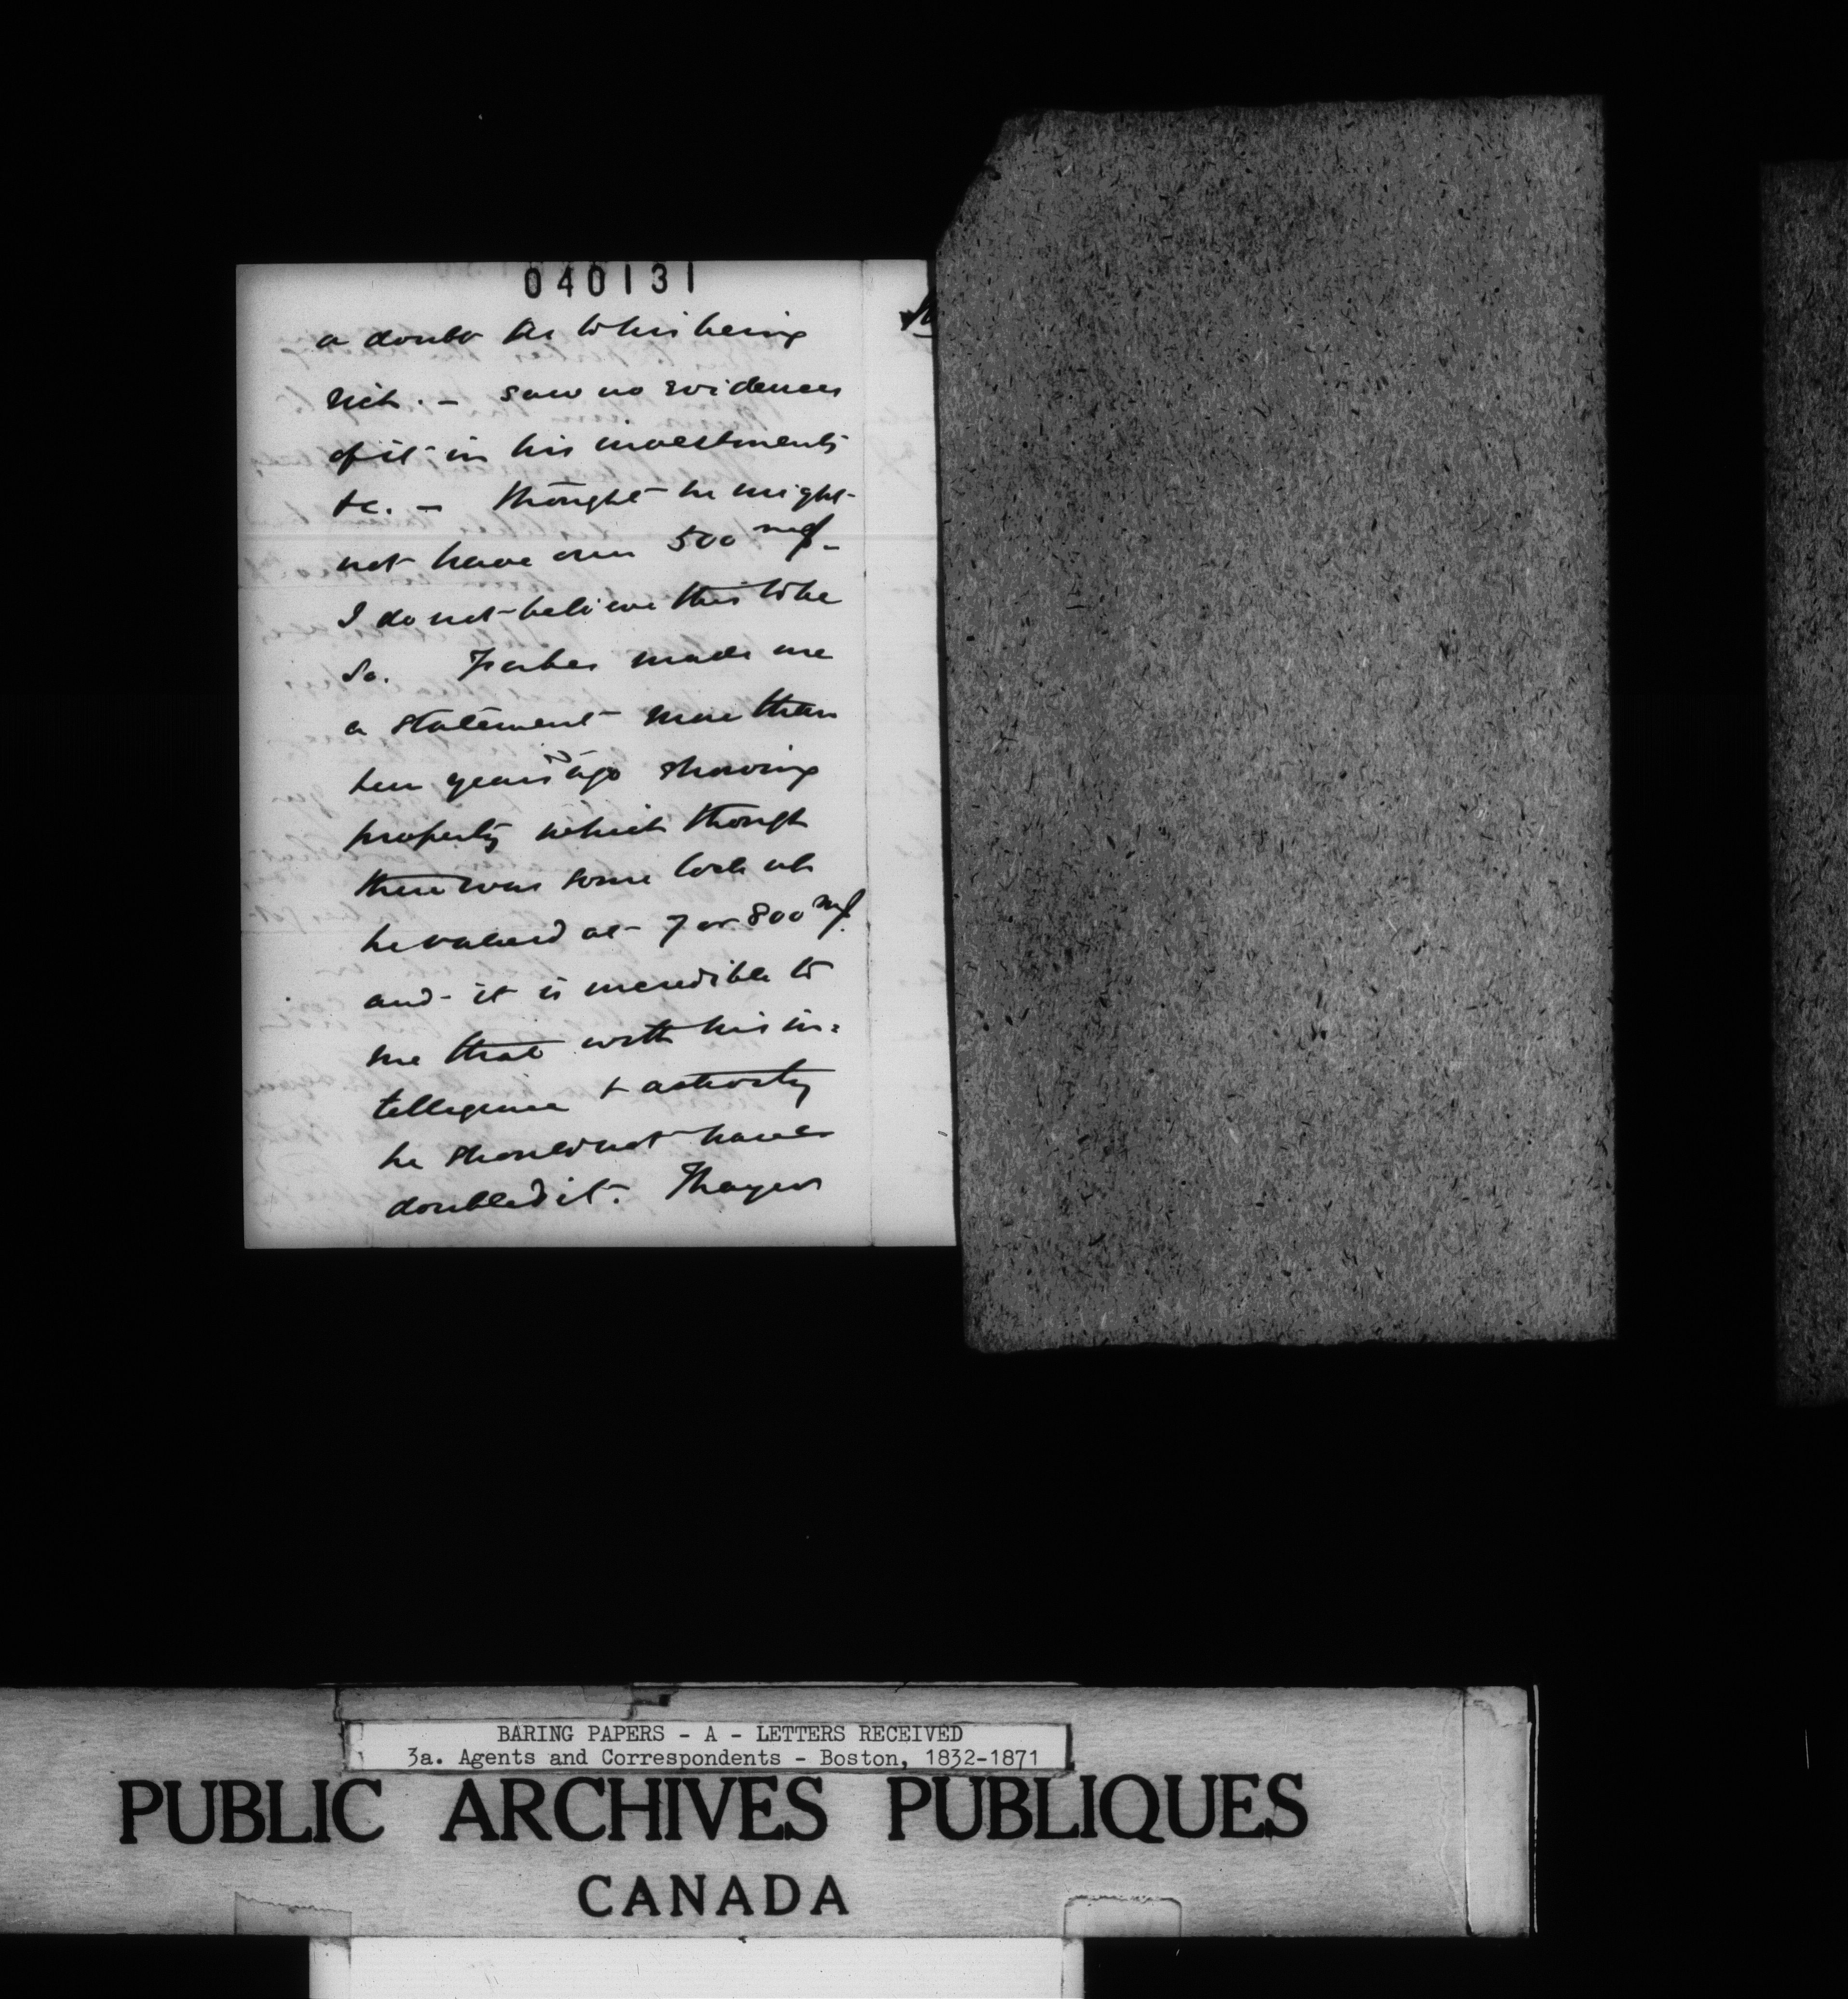 040131
a doubt as to his being
rich. - saw no evidences
of it in his investments
&c. - thought he might
not have over 500
I do not believe this to be
so. Forbes made me
a statement more than
ten years ago showing
property which though
there was some lock up
he valued at 7 or 800
and it is incredible to
me that with his in=
telligence & activity
he should not have
doubled it. Thayer
BARING PAPERS - A - LETTERS RECEIVED
3a. Agents and Correspondents - Boston, 1832-1871
PUBLIC ARCHIVES PUBLIQUES
CANADA